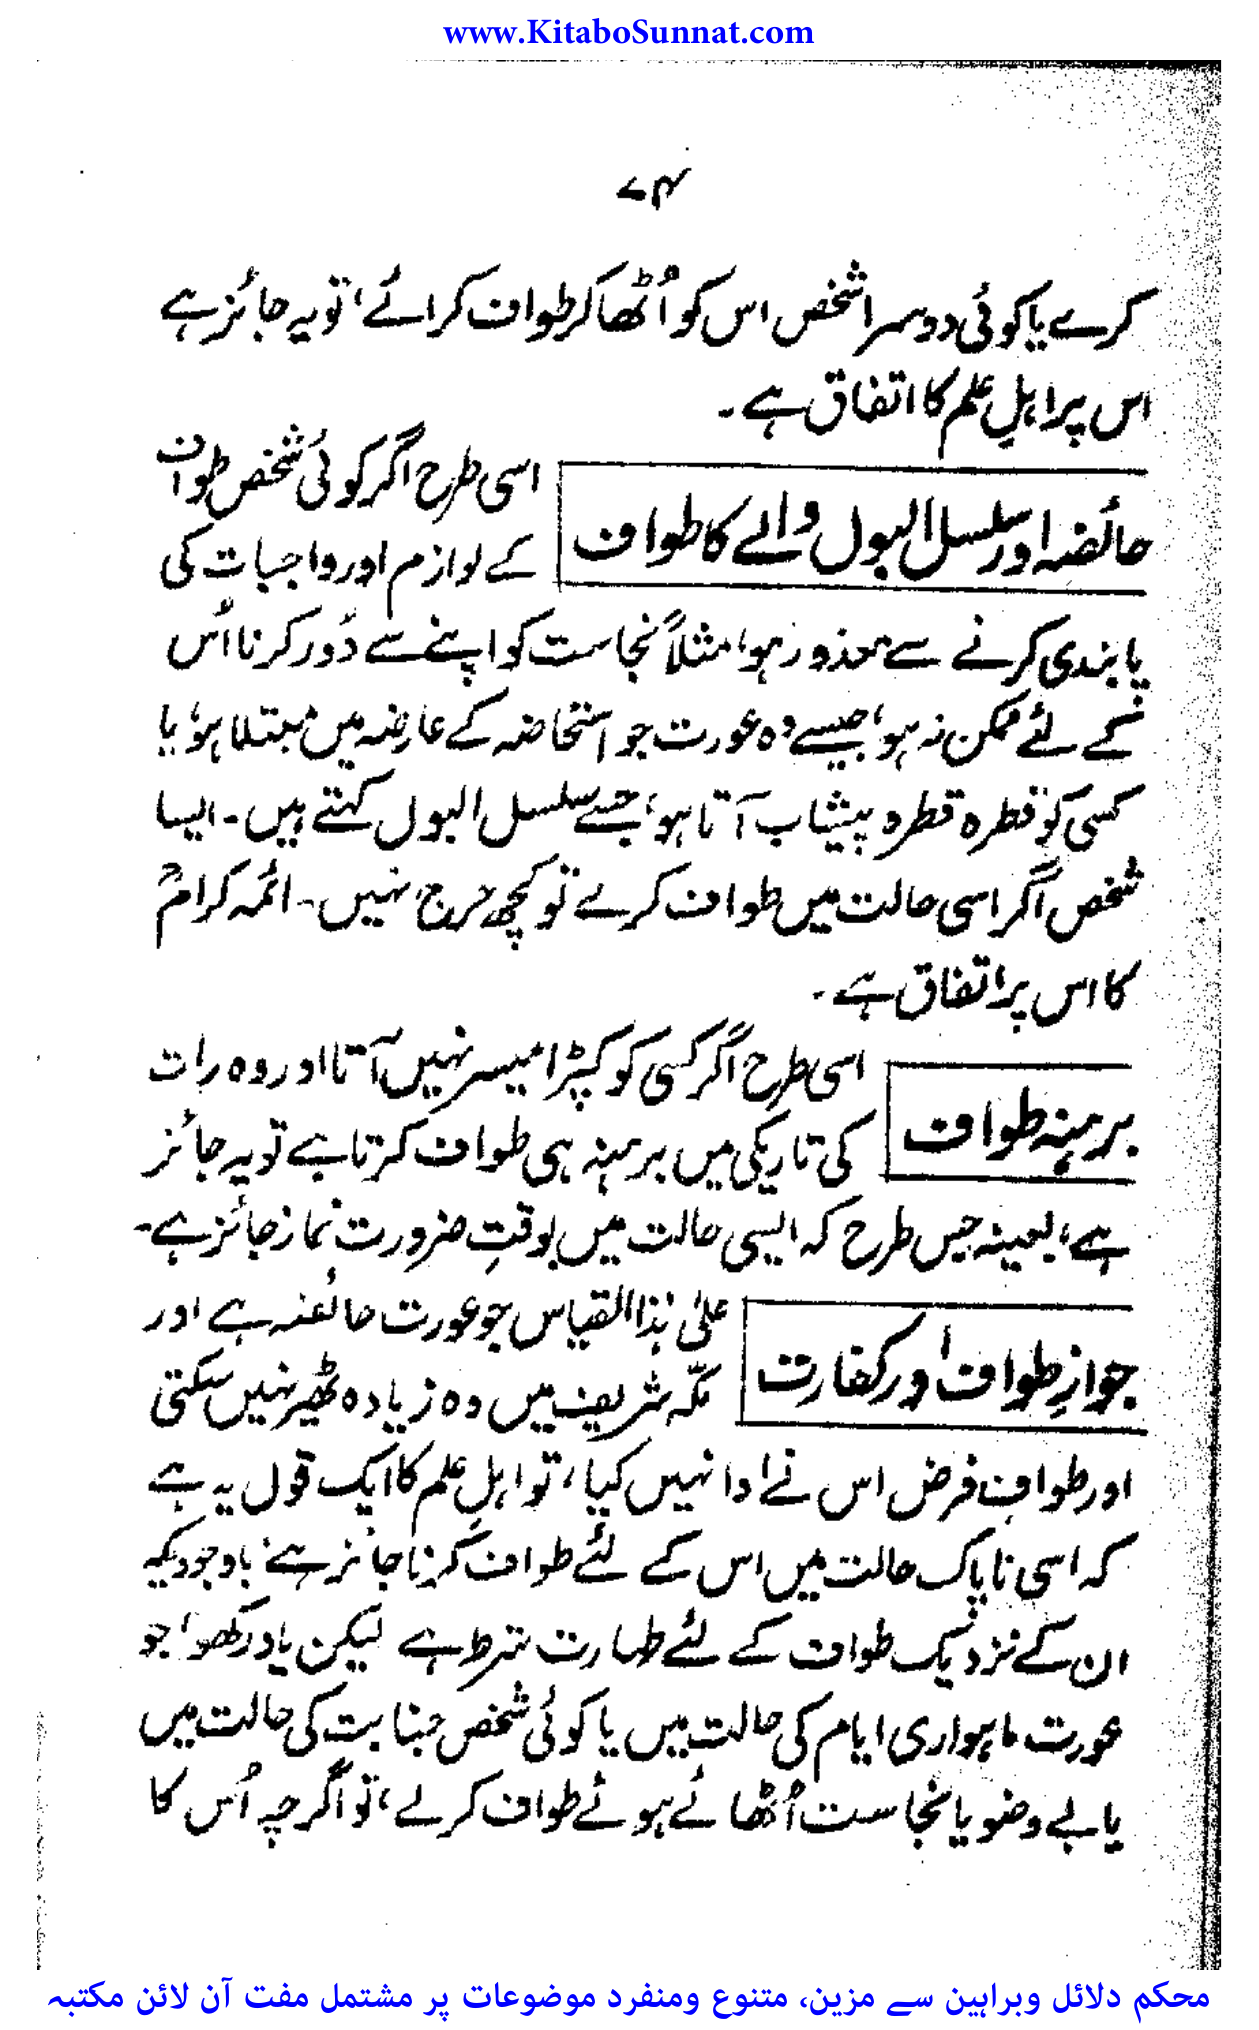 www.KitaboSunnat.com
۷۴
کرے یا کوئی دوسرا شخص اس کو اُٹھا کر طواف کرائے، تو یہ جائز ہے
اس پر اہلِ علم کا اتفاق ہے۔
حائضہ اور سلسل البول والے کا طواف
اسی طرح اگر کوئی شخص طواف
کے لوازم اور واجبات کی
پابندی کرنے سے معذور ہو، مثلاً نجاست کو اپنے سے دُور کرنا اُس
کے لئے ممکن نہ ہو، جیسے وہ عورت جو استحاضہ کے عارضہ میں مبتلا ہو، یا
کسی کو قطرہ قطرہ پیشاب آتا ہو، جسے سلسل البول کہتے ہیں۔ ایسا
شخص اگر اسی حالت میں طواف کرلے تو کچھ حرج نہیں۔ ائمہ کرامؒ
کا اس پر اتفاق ہے۔
برہنہ طواف
اسی طرح اگر کسی کو کپڑا میسر نہیں آتا اور وہ رات
کی تاریکی میں برہنہ ہی طواف کرتا ہے تو یہ جائز
ہے، بعینہ جس طرح کہ ایسی حالت میں بوقتِ ضرورت نماز جائز ہے۔
جوازِ طواف اور کفارت
علیٰ ہذا القیاس جو عورت حائضہ ہے اور
مکّہ شریف میں وہ زیادہ ٹھیر نہیں سکتی
اور طوافِ فرض اس نے ادا نہیں کیا، تو اہلِ علم کا ایک قول یہ ہے
کہ اسی ناپاک حالت میں اس کے لئے طواف کرنا جائز ہے، باوجودیکہ
ان کے نزدیک طواف کے لئے طہارت شرط ہے لیکن یاد رکھو، جو
عورت ماہواری ایام کی حالت میں یا کوئی شخص جنابت کی حالت میں
یا بے وضو یا نجاست اُٹھائے ہوئے طواف کرلے، تو اگرچہ اُس کا
محکم دلائل وبراہین سے مزین، متنوع ومنفرد موضوعات پر مشتمل مفت آن لائن مکتبہ